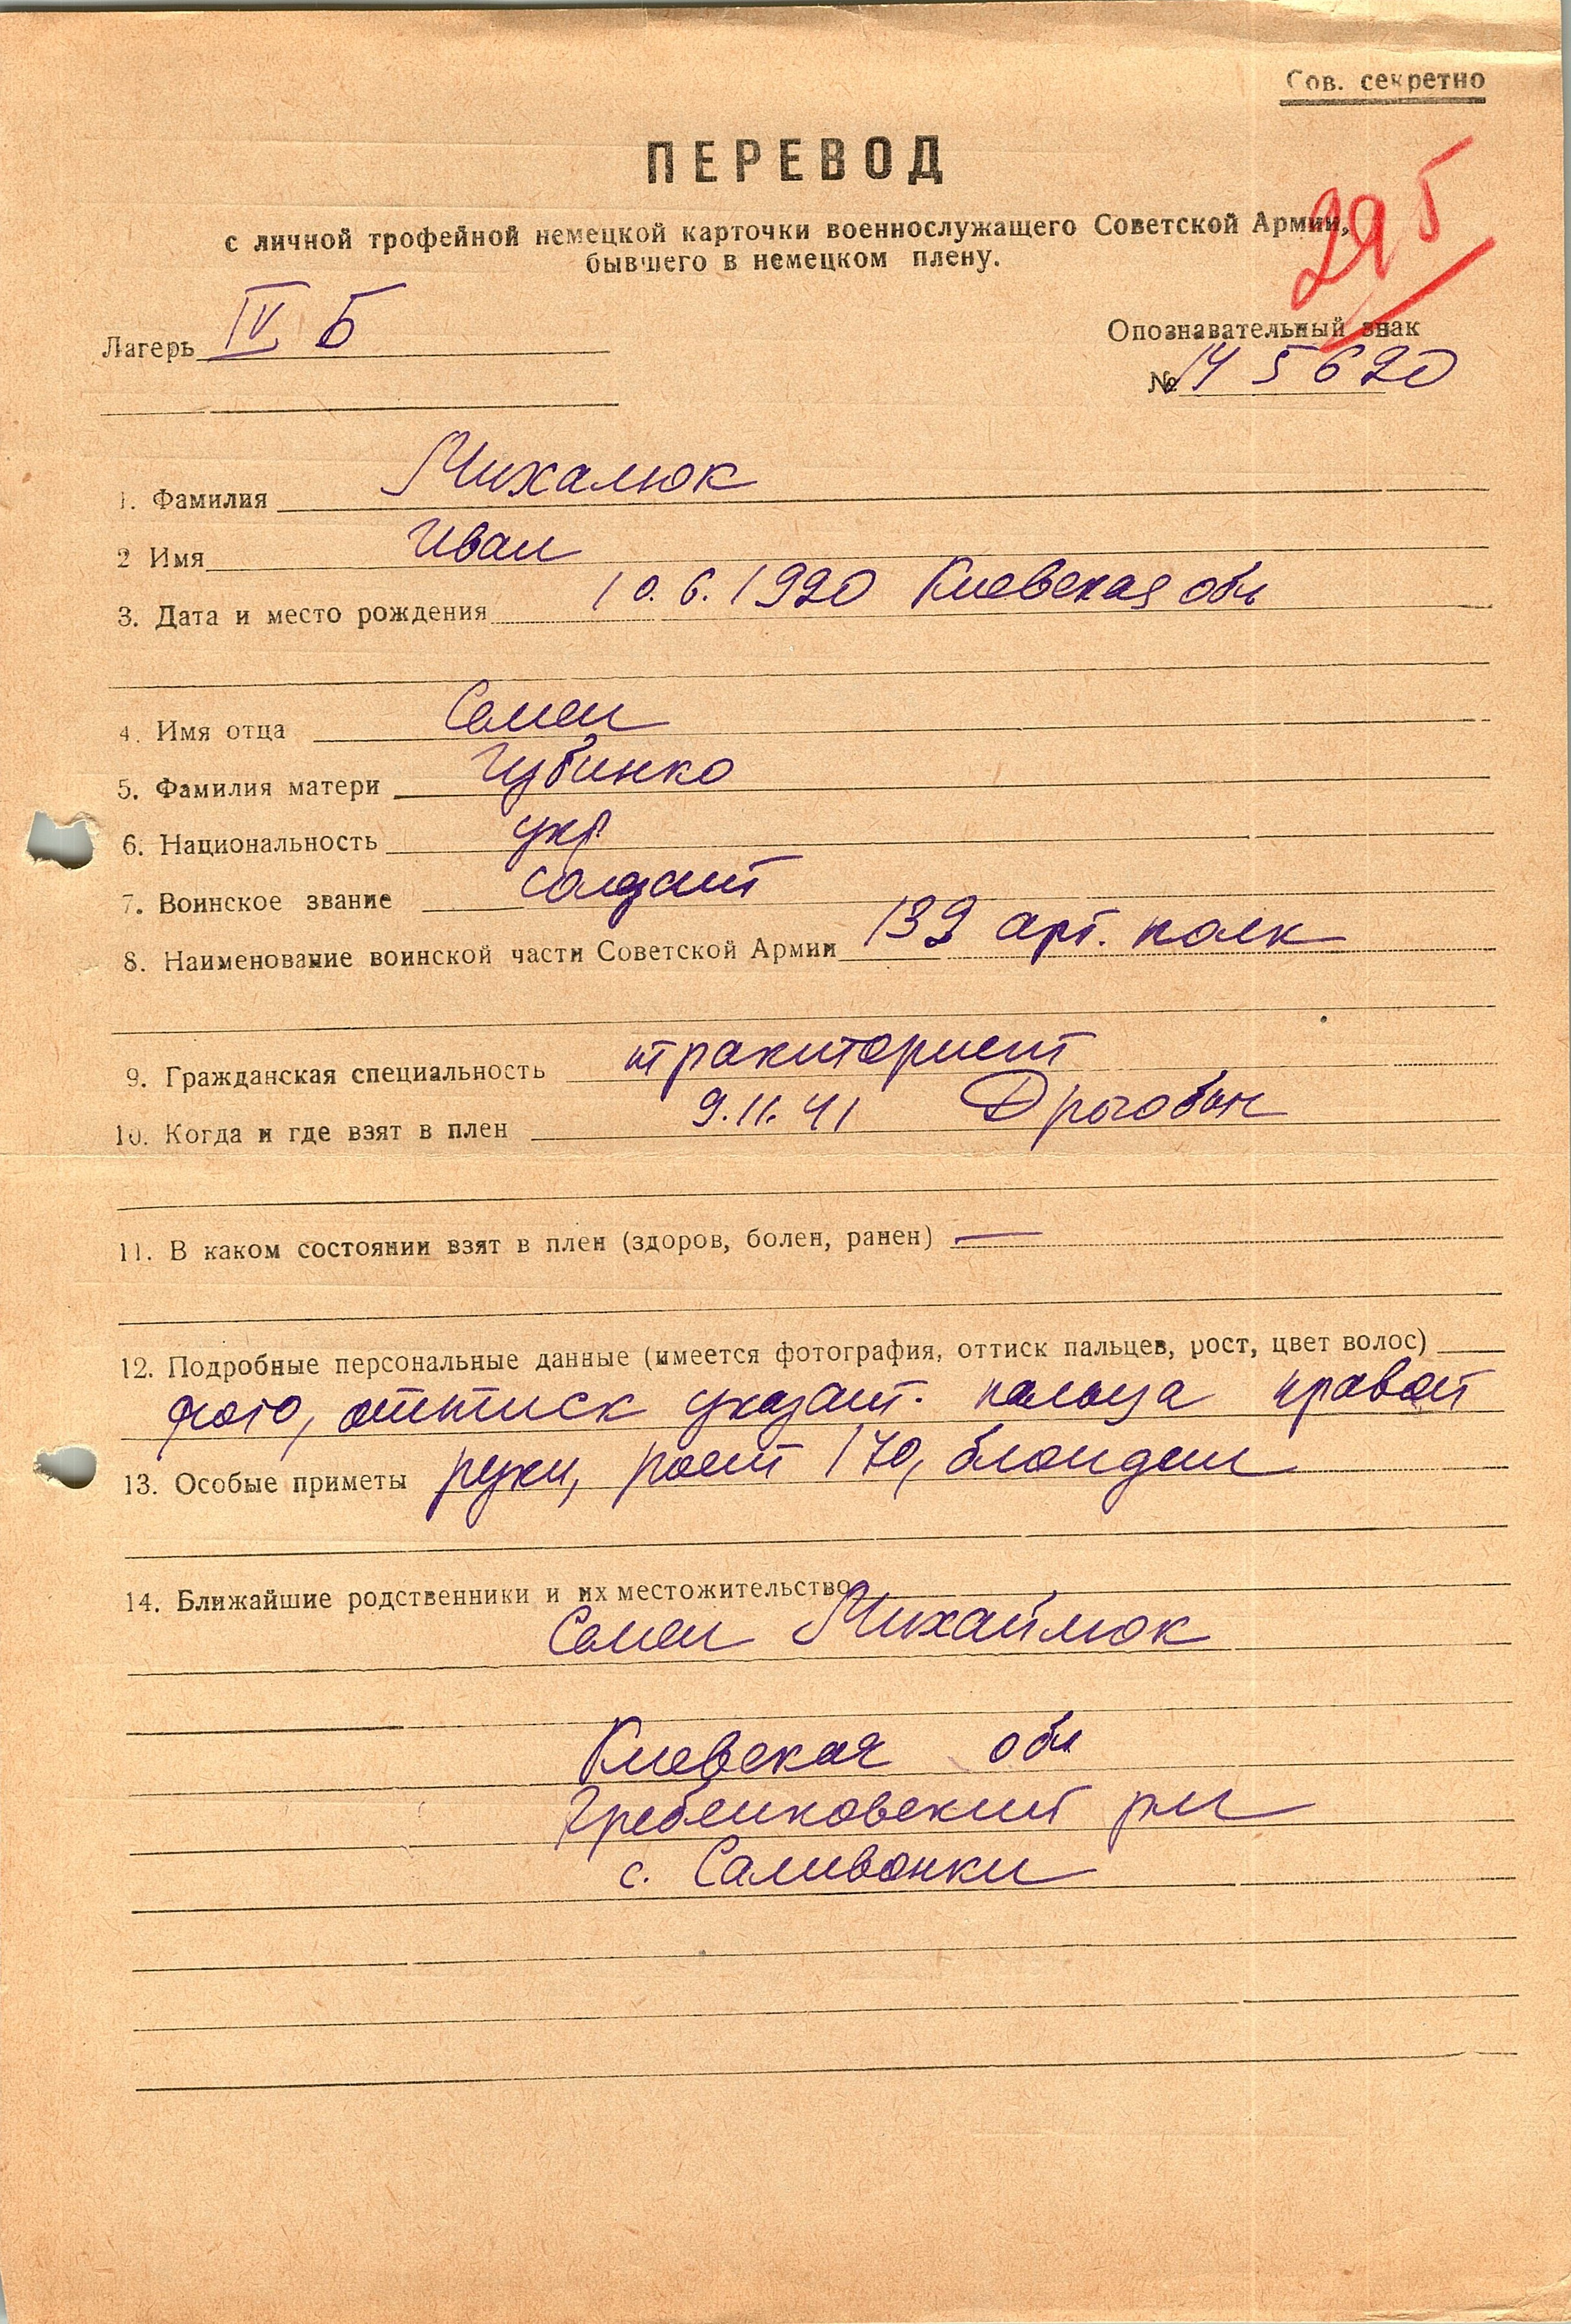 Сов. секретно
ПЕРЕВОД
с личной трофейной немецкой карточки военнослужащего Советской Армии,
бывшего в немецком плену.
29
Лагерь IV Б
Опознавательный знак
№ 145620
1. Фамилия Михалюк
2 Имя Иван
3. Дата и место рождения 10.6.1920 Киевская обл
4. Имя отца Семен
5. Фамилия матери Губинко
6. Национальность укр.
7. Воинское звание солдат
8. Наименование воинской части Советской Армии 139 арт. полк
9. Гражданская специальность тракторист
10. Когда и где взят в плен 9.11.41 Дрогобыч
11. В каком состоянии взят в плен (здоров, болен, ранен) —
12. Подробные персональные данные (имеется фотография, оттиск пальцев, рост, цвет волос)
фото, оттиск указат. пальца правой
13. Особые приметы руки, рост 170, блондин
14. Ближайшие родственники и их местожительство
Семен Михайлюк
Киевская обл
Гребенковский рн
с. Саливонки